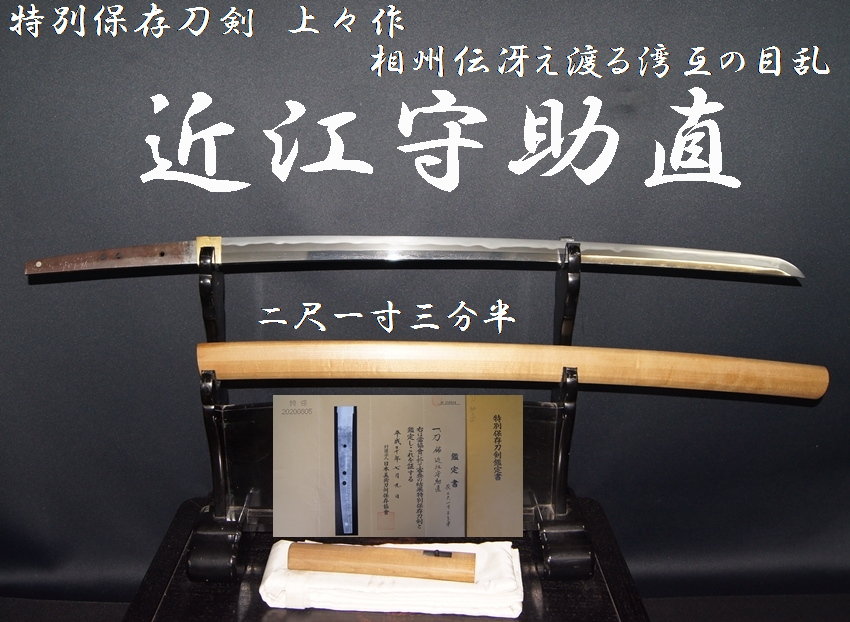 特別保存刀剣 上々作
相州伝冴え渡る湾互の目乱
近江守助直
二尺一寸三分半
特保
20200805
特別保存刀剣鑑定書
鑑定書
一、刀 銘近江守助直
右は当協會に於て審査の結果特別保存刀剣と
鑑定しこれを証する
平成二十年七月九日
財團法人日本美術刀剣保存協會